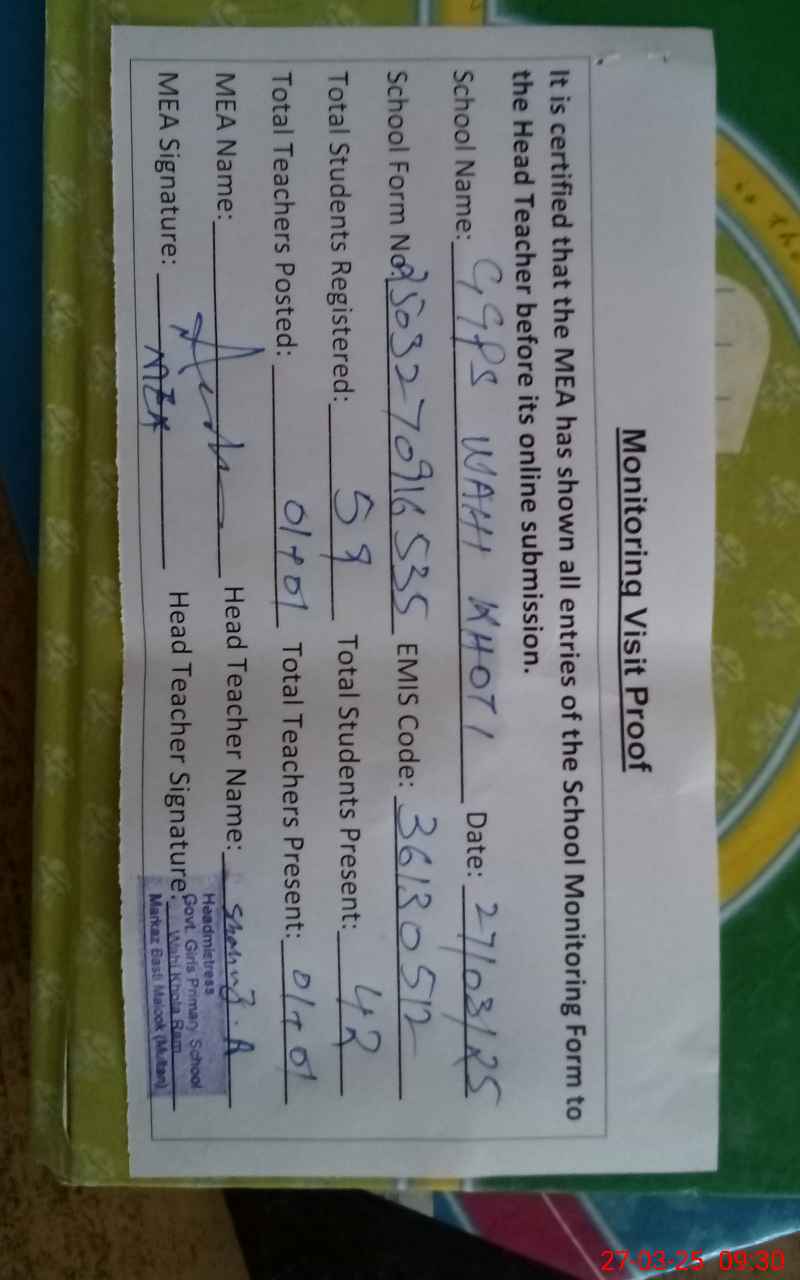 Monitoring Visit Proof
It is certified that the MEA has shown all entries of the School Monitoring Form to
the Head Teacher before its online submission.
School Name: GGPS WAHI KHOTI Date: 27/03/25
School Form No. 2503270916535 EMIS Code: 36130512
Total Students Registered: 59 Total Students Present: 42
Total Teachers Posted: 01+01 Total Teachers Present: 01+01
MEA Name: Head Teacher Name:
MEA Signature: MEA Head Teacher Signature:
Headmistress
Govt. Girls Primary School
Wahi Khota Ram
Markaz Basti Malook (Multan)
27-03-25 09:30